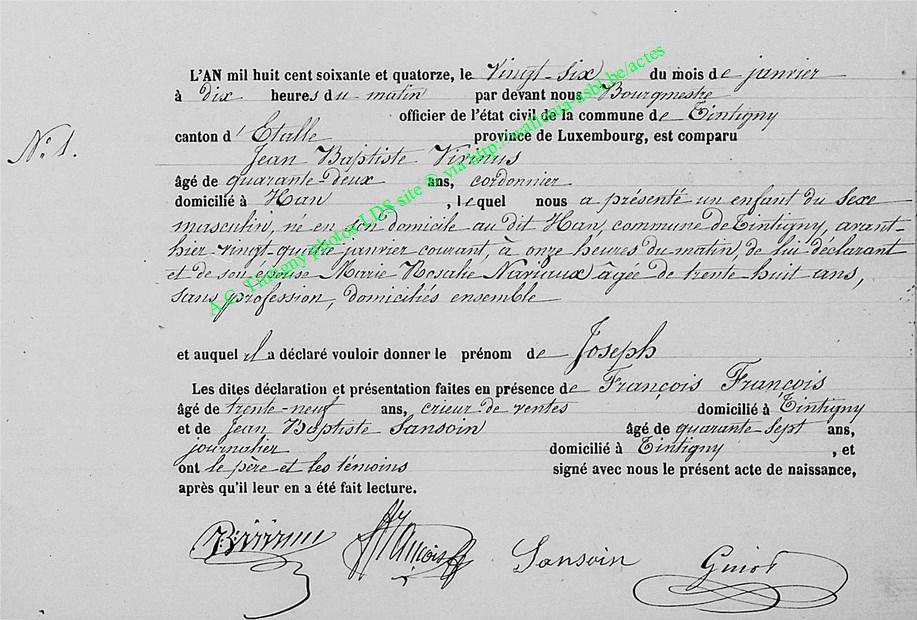 L'AN mil huit cent soixante et quatorze, le Vingt-Six du mois de janvier
à dix heures du matin par devant nous Bourgmestre
officier de l'état civil de la commune de Tintigny
N° 1.
canton d' Etalle province de Luxembourg, est comparu
Jean Baptiste
âgé de quarante-deux ans, cordonnier
domicilié à Han , lequel nous a présenté un enfant du sexe
masculin, né en son domicile au dit Han, commune de Tintigny, avant-
hier vingt-quatre janvier courant, à onze heures du matin, de lui déclarant
et de son épouse Marie Rosalie âgée de trente-huit ans,
sans profession, domiciliés ensemble
et auquel il a déclaré vouloir donner le prénom de Joseph
Les dites déclaration et présentation faites en présence de François François
âgé de trente-neuf ans, crieur de ventes domicilié à Tintigny
et de Jean Baptiste Sansoin âgé de quarante sept ans,
journalier domicilié à Tintigny , et
ont le père et les témoins signé avec nous le présent acte de naissance,
après qu'il leur en a été fait lecture.
François Sansoin Guiot
A.C. Tintigny photos LDS site © via http://wallonia-asbl.be/actes